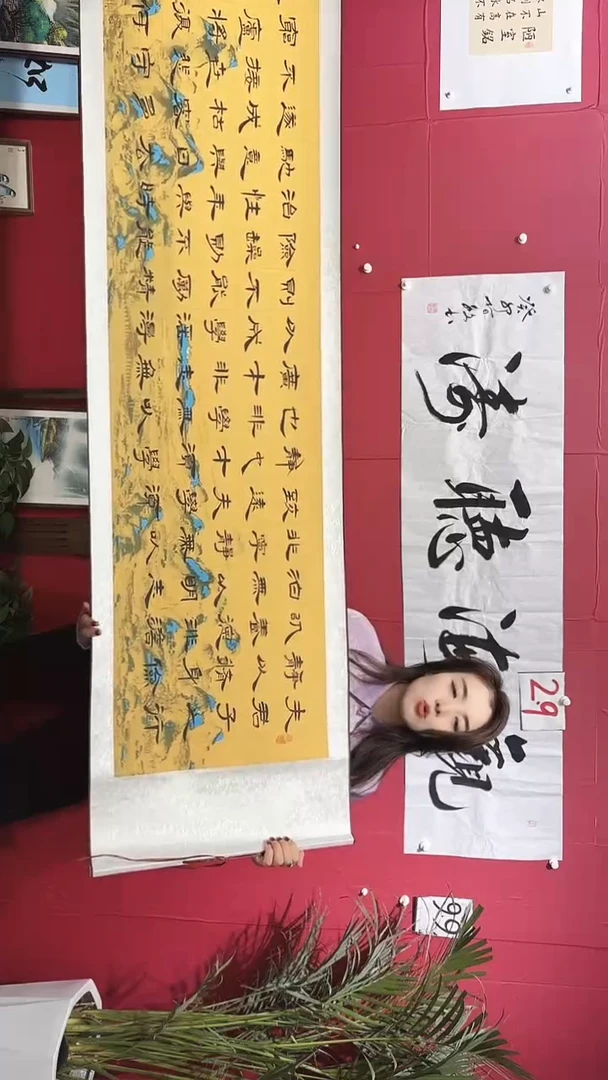 夫君子之行
靜以脩身儉
以養德非澹
泊無以明志
非寧靜無以
致遠夫學須
靜也才須學
也非學無以
廣才非志無
以成學慆慢
則不能勵精
險躁則不能
治性年與時
馳意與日去
遂成枯落多
不接世悲守
窮廬將復何
觀海聽濤
癸卯
29
99
陋室銘
山不在高